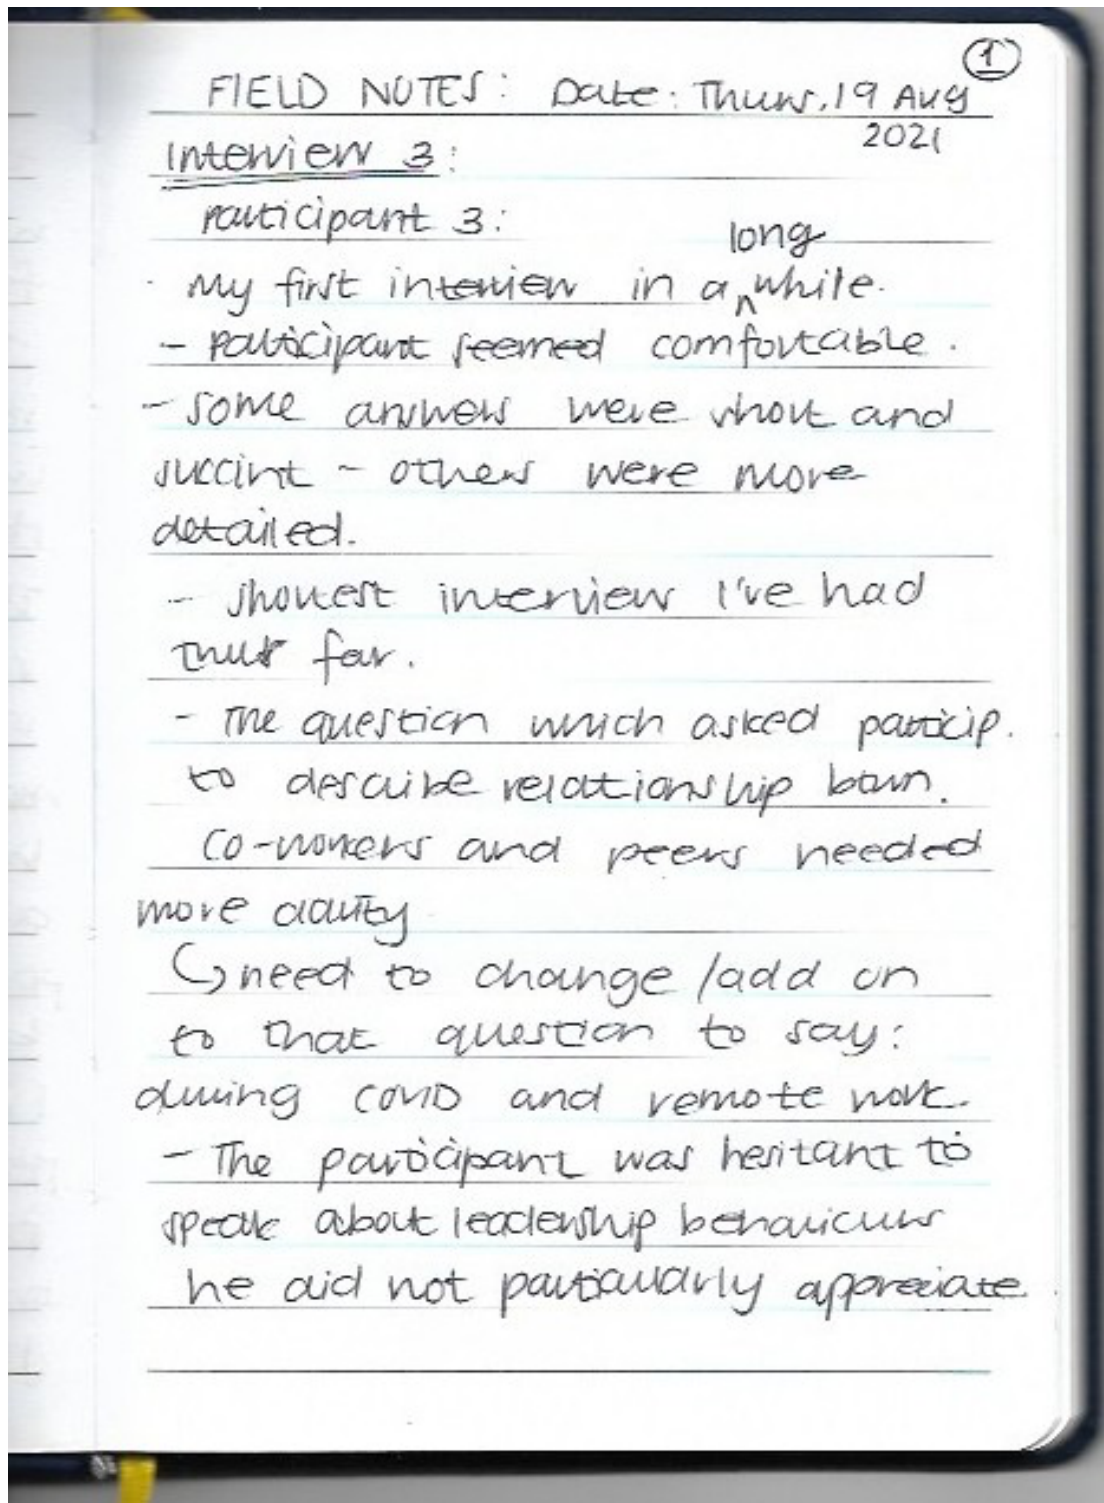 ①
FIELD NOTES: Date: Thurs, 19 Aug
2021
Interview 3:
Participant 3:
long
· My first interview in a ^ while.
- Participant seemed comfortable.
- Some answers were short and
succint - others were more
detailed.
- Shortest interview I've had
thus far.
- The question which asked particip.
to describe relationship btwn.
co-workers and peers needed
more clarity
↳ need to change / add on
to that question to say:
during COVID and remote work.
- The participant was hesitant to
speak about leadership behaviours
he did not particularly appreciate.